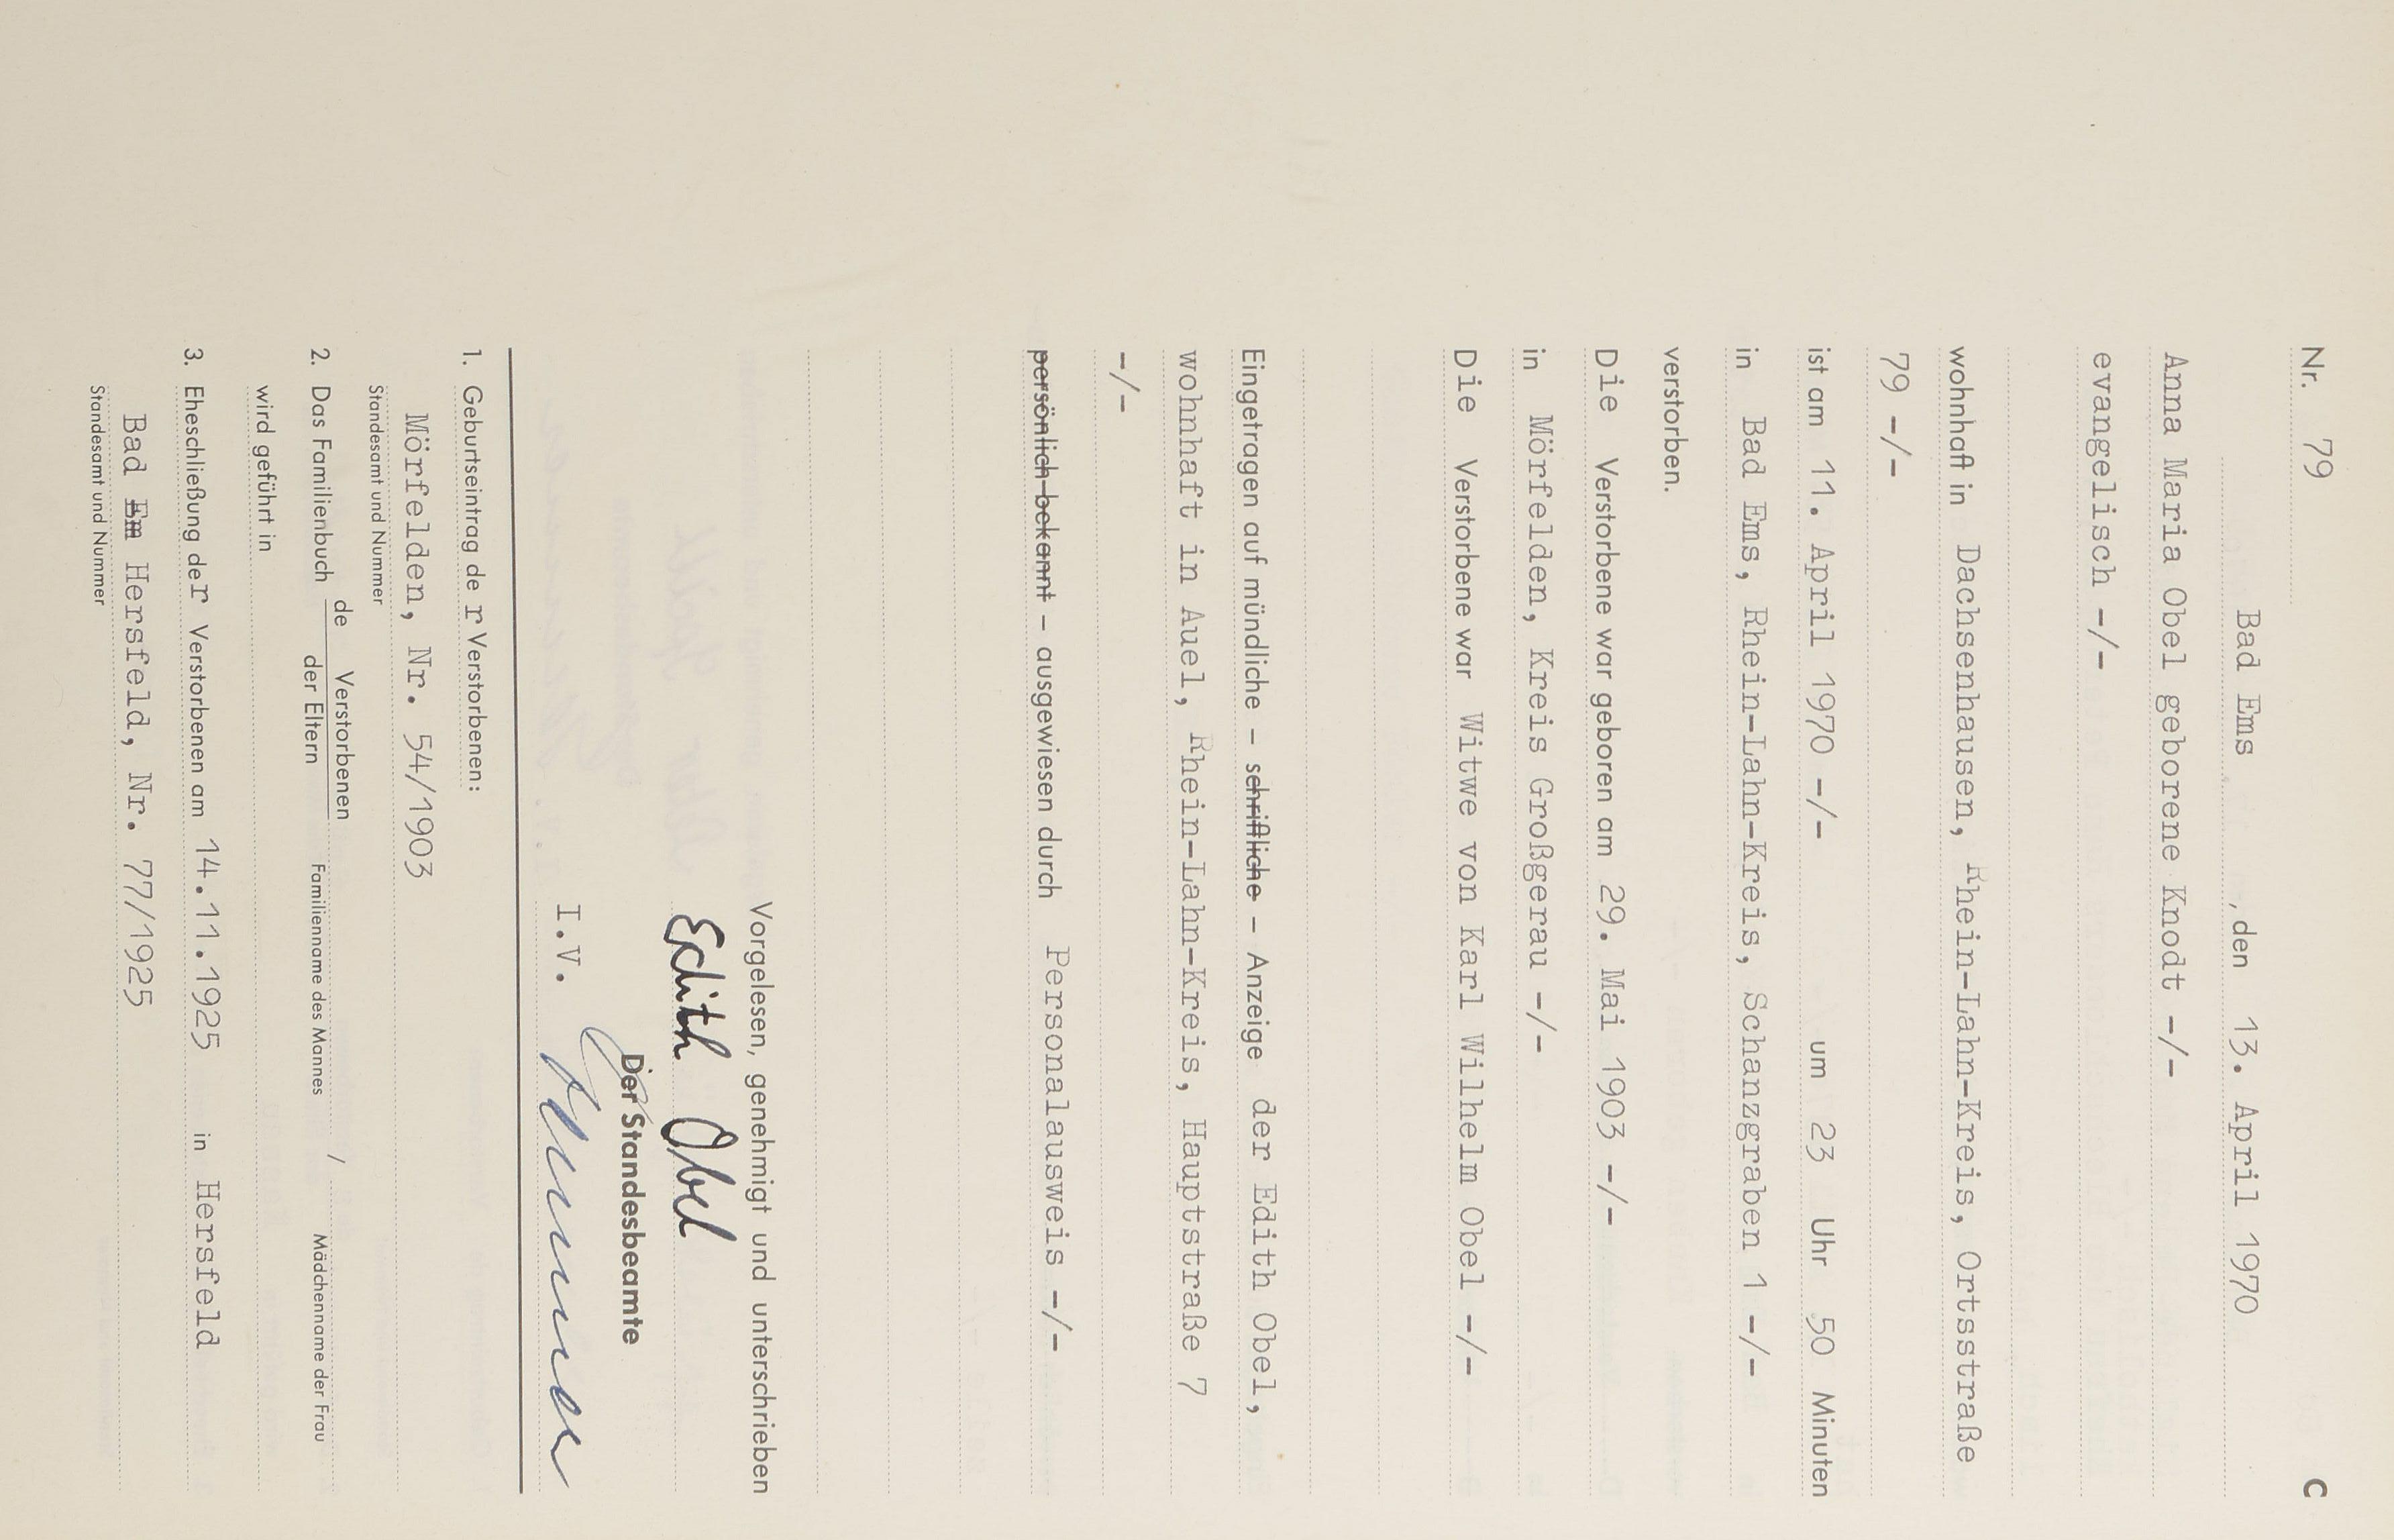 Nr. 79 C
Bad Ems, den 13. April 1970
Anna Maria Obel geborene Knodt -/-
evangelisch -/-
wohnhaft in Dachsenhausen, Rhein-Lahn-Kreis, Ortsstraße
79 -/-
ist am 11. April 1970 -/- um 23 Uhr 50 Minuten
in Bad Ems, Rhein-Lahn-Kreis, Schanzgraben 1 -/-
verstorben.
Die Verstorbene war geboren am 29. Mai 1903 -/-
in Mörfelden, Kreis Großgerau -/-
Die Verstorbene war Witwe von Karl Wilhelm Obel -/-
Eingetragen auf mündliche – schriftliche – Anzeige der Edith Obel,
wohnhaft in Auel, Rhein-Lahn-Kreis, Hauptstraße 7
-/-
persönlich bekannt – ausgewiesen durch Personalausweis -/-
Vorgelesen, genehmigt und unterschrieben
Edith Obel
Der Standesbeamte
I.V.
1. Geburtseintrag der Verstorbenen:
Mörfelden, Nr. 54/1903
Standesamt und Nummer
2. Das Familienbuch de Verstorbenen / der Eltern
Familienname des Mannes / Mädchenname der Frau
wird geführt in
3. Eheschließung der Verstorbenen am 14.11.1925 in Hersfeld
Bad Em Hersfeld, Nr. 77/1925
Standesamt und Nummer